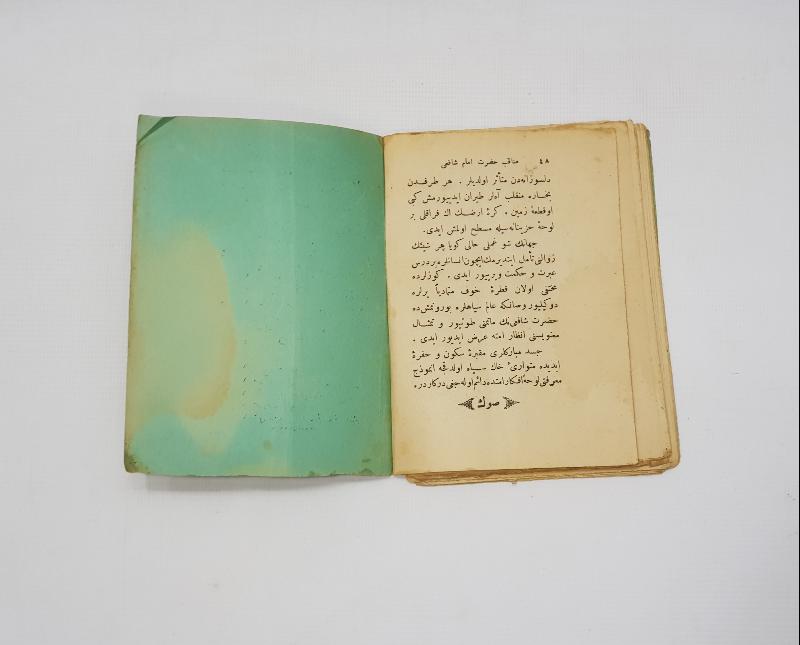 ٤٨ مناقب حضرت امام شافعی
دلسوزانه‌دن متأثر اولدیلر . هر طرفدن
بخاره منقلب آه‌لر طیران ایدییورمش کی
او قطعهٔ زمین . کرهٔ ارضك اك فراقلی بر
لوحهٔ حزینانه‌سیله مسطح اولمش ایدی.
جهانك شو غملی حالی کویا هر شیئك
زوالنی تأمل ایتدیرمك ایچون انسانلره بر درس
عبرت و حکمت ویرییور ایدی . کوزلرده
مختفی اولان قطرهٔ خوف متمادیاً یرلره
دوکیلیور وصانکه عالم سیاهلره بورونمش ده
حضرت شافعی‌نك ماتمنی طوتیور و تمثال
معنویسنی انظار امته عرض ایدیور ایدی .
جسد مبارکلری مقبرهٔ سکون و حفرهٔ
ابدیده متواریٔ خاك سیاه اولدقجه انموذج
معرفتی لوحهٔ افکار امتده دائم اوله‌جغی درکاردر.
صوك